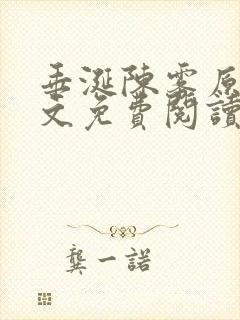 垂涎陳霧原
文免費閱讀
龔一諾